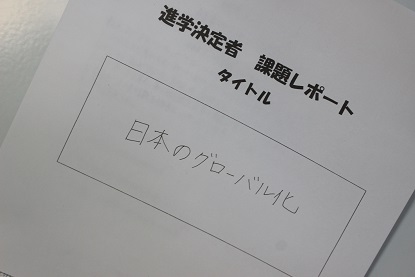 進学決定者　課題レポート
タイトル
日本のグローバル化